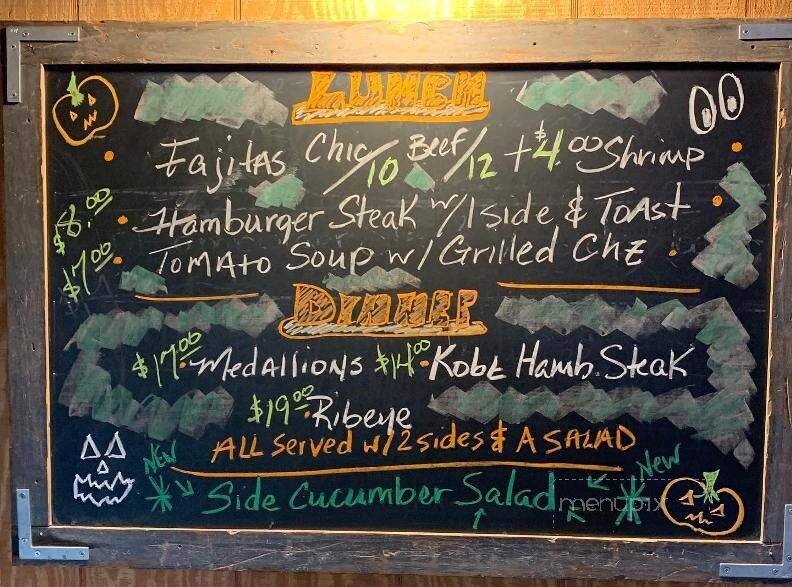 Lunch
Fajitas Chic/10 Beef/12 + $4.00 Shrimp
$8.00 Hamburger Steak w/1 side & Toast
$7.00 Tomato Soup w/ Grilled Chz
Dinner
$17.00 Medallions $14.00 Kobe Hamb. Steak
$19.00 Ribeye
All Served w/2 sides & A SALAD
New New
Side Cucumber Salad
menupix